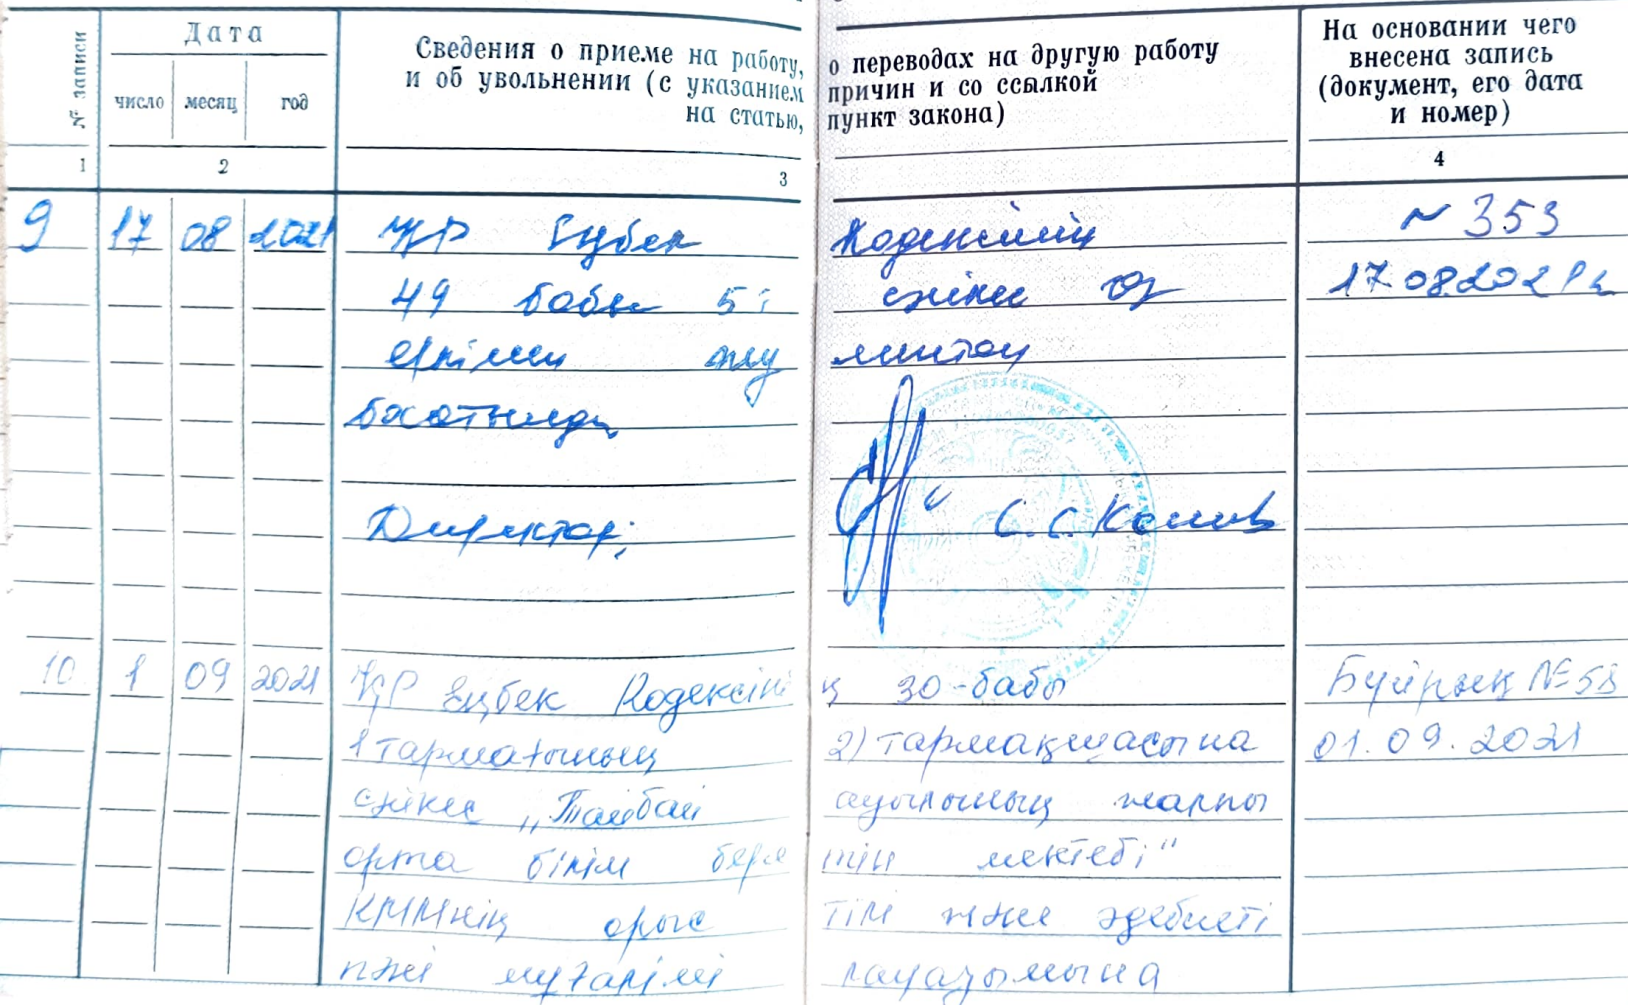 № записи
Дата
число месяц год
Сведения о приеме на работу, о переводах на другую работу
и об увольнении (с указанием причин и со ссылкой
на статью, пункт закона)
На основании чего
внесена запись
(документ, его дата
и номер)
1 2 3 4
9 17 08 2021 ҚР Еңбек Кодексінің № 353
49 бабы 5 сәйкес өз 17.08.2021
еркімен
босатылды
Директор: С.С.
10 1 09 2021 ҚР Еңбек Кодексінің 30-бабы Бұйрық №58
1 тармағының 2) тармақшасына 01.09.2021
сәйкес „Тайбай ауылының жалпы
орта білім беретін мектебі"
КММнің орыс тілі және әдебиеті
пәні мұғалімі лауазымына